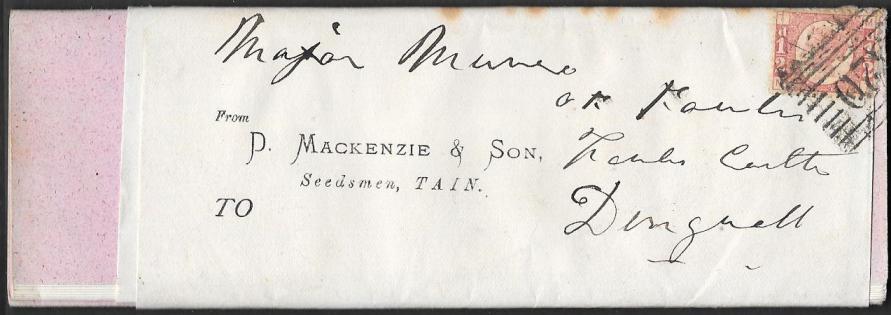 Major Munro
of Foulis
From
D. MACKENZIE & SON,
Seedsmen, TAIN.
Foulis Castle
TO
Dingwall
1/2